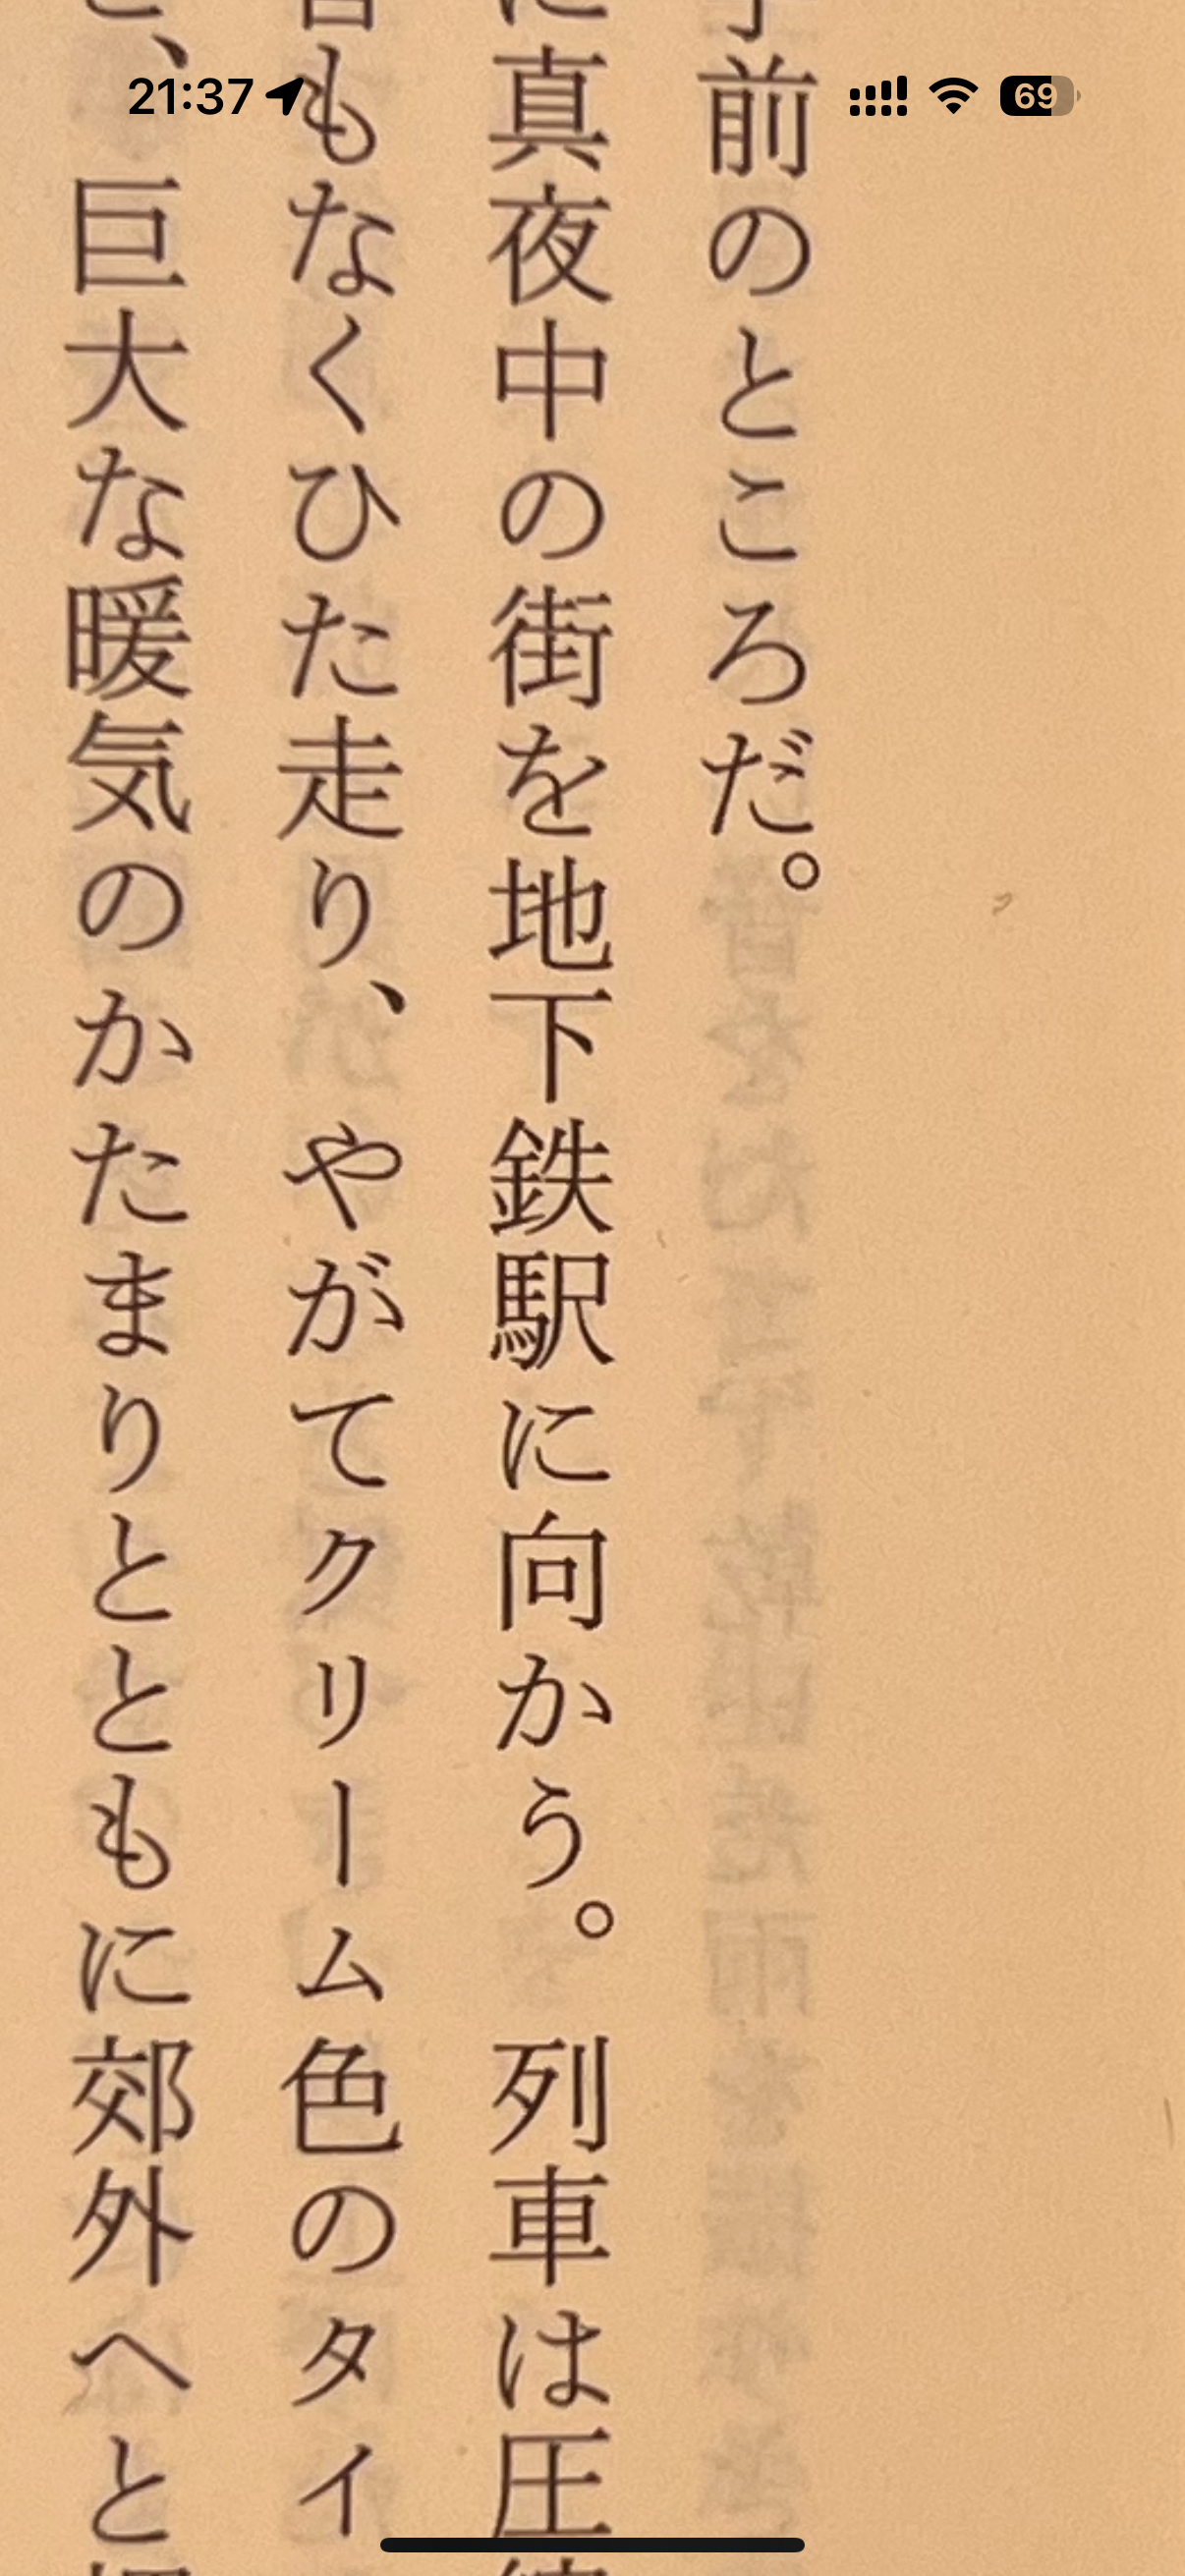 21:37
69
前のところだ。
に真夜中の街を地下鉄駅に向かう。列車は圧
もなくひた走り、やがてクリーム色のタイ
と、巨大な暖気のかたまりとともに郊外へと